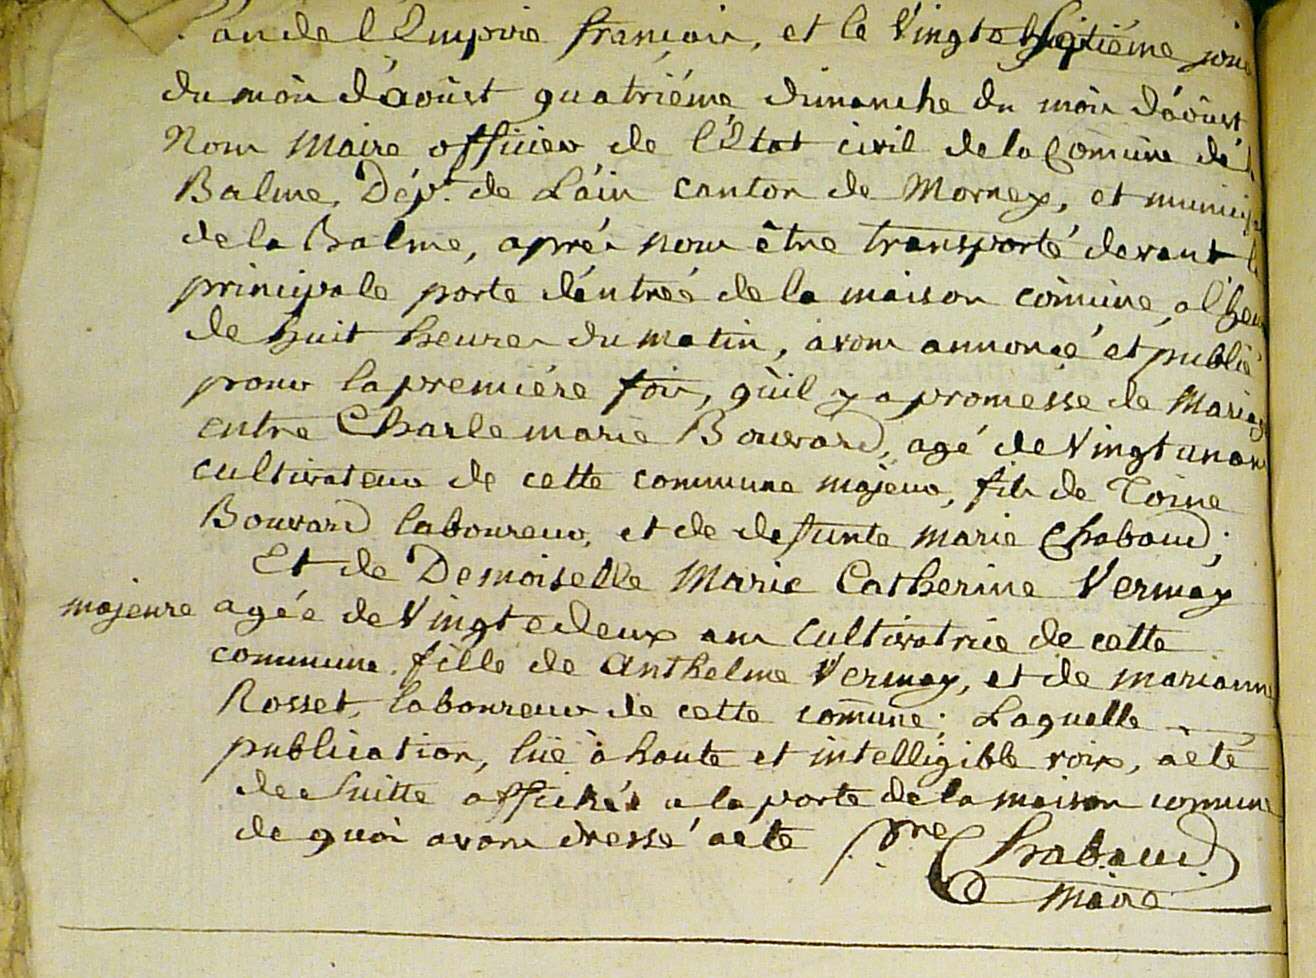 l'an de l'Empire françois, et le vingt huitiéme jour
du mois d'août quatriéme dimanche du mois d'août
Nous Maire officier de l'Etat civil de la Comûne de
Balme, Dépt. de L'ain canton de Mornay, et municip
de la Balme, aprés nous être transporté devant
principale porte d'entrée de la maison comûne, a l'heu
de huit heures du matin, avons annoncé et publié
pour la premiére fois, qu'il y a promesse de Mariage
entre Charle marie Bouvard, agé de vingt un ans
cultivateur de cette commune majeur, fils de Toine
Bouvard laboureur, et de defunte marie Chabaud;
Et de Demoiselle Marie Catherine Vermay
majeure agée de vingt e deux ans cultivatrice de cette
commune. fille de Anthelme Vermay, et de marianne
Rosset, laboureur de cette comûne; Laquelle
publication, lüe à haute et intelligible voix, a eté
de suitte affichée a la porte de la maison comune
de quoi avons dressé acte pre Chabaud
Maire